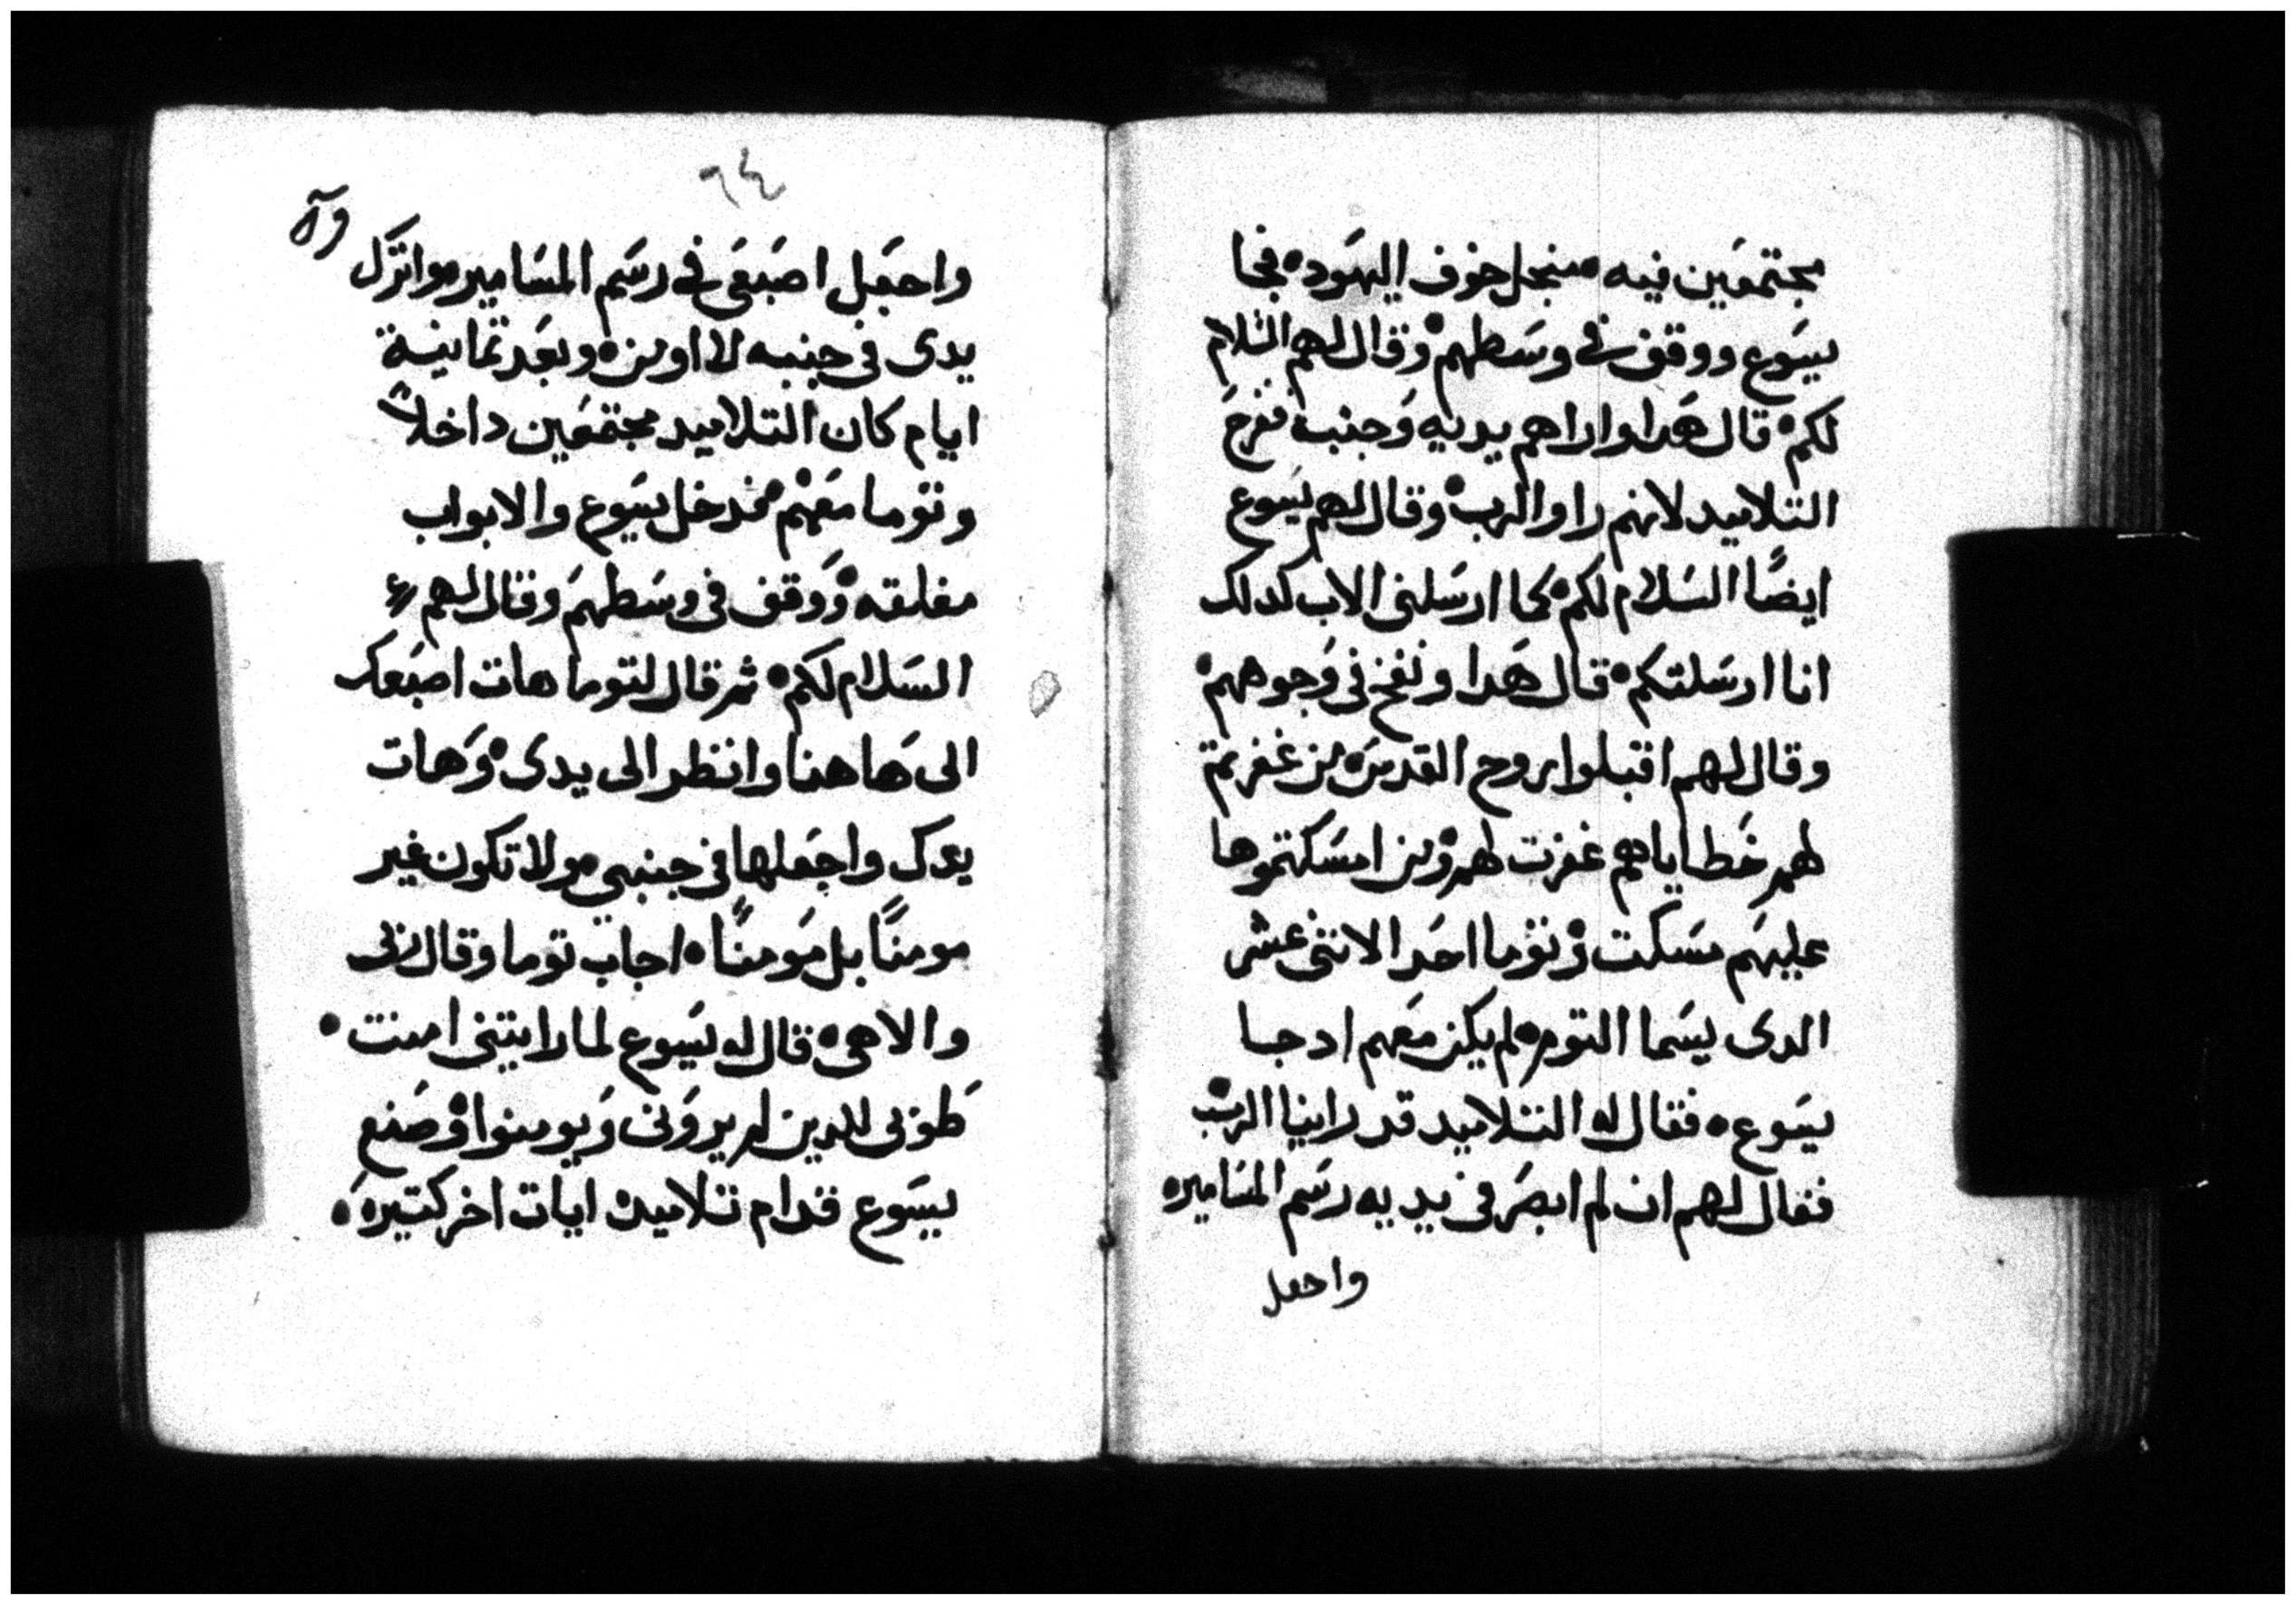 مجتمعين فيه منجل خوف اليهود فجا
يسوع ووقف في وسطهم وقال لهم السلام
لكم قال هدا واراهم يديه وجنبه ففرح
التلاميد لانهم راوا الرب وقال لهم يسوع
ايضًا السلام لكم كما ارسلني الاب كدلك
انا ارسلتكم قال هدا ونفخ في وجوههم
وقال لهم اقبلوا روح القدس من غفرتم
لهم خطاياهم غفرت لهم ومن امسكتموها
عليهم مسكت وتوما احد الاتنى عشر
الدى يسما التوم لم يكن معهم اد جا
يسوع فقال له التلاميد قد راينا الرب
فقال لهم ان لم ابصر في يديه رسم المسامير
واجعل
٦٤
واجعل اصبعى في رسم المسامير واترك
يدى في جنبه لا اومن وبعد تمانية
ايام كان التلاميد مجتمعين داخلاً
وتوما معهم فدخل يسوع والابواب
مغلقه ووقف في وسطهم وقال لهم
السلام لكم ثم قال لتوما هات اصبعك
الى هاهنا وانظر الى يدى وهات
يدك واجعلها في جنبى ولا تكون غير
مومنًا بل مومنًا اجاب توما وقال ربى
والاهى قال له يسوع لما رايتنى امنت
طوبى للدين لم يرونى ويومنوا وصنع
يسوع قدام تلاميده ايات اخر كتيره